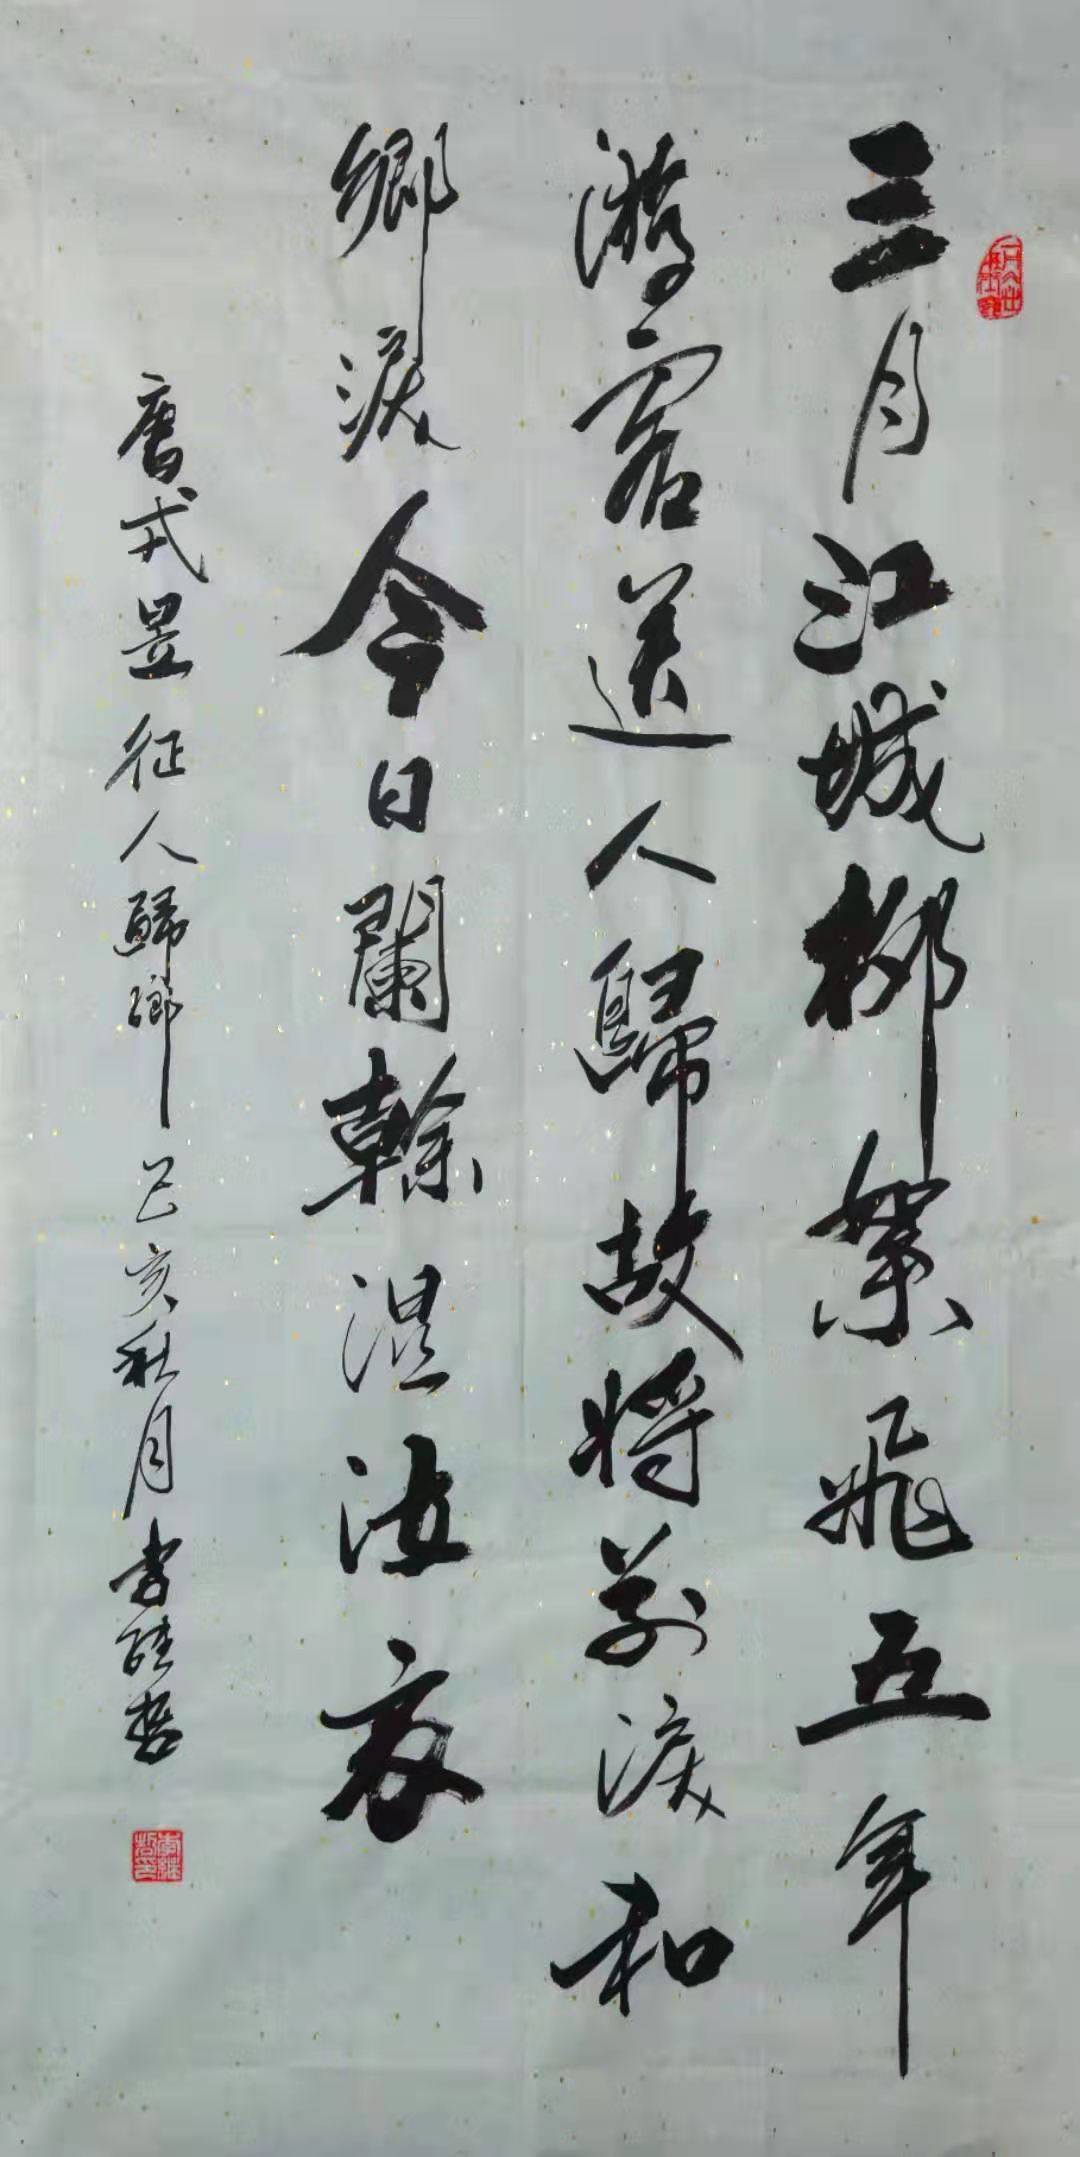 三月江城柳絮飛五年
游客送人歸故将別淚和
鄉淚今日闌幹湿汝衣
唐戎昱征人歸鄉己亥秋月李継哲